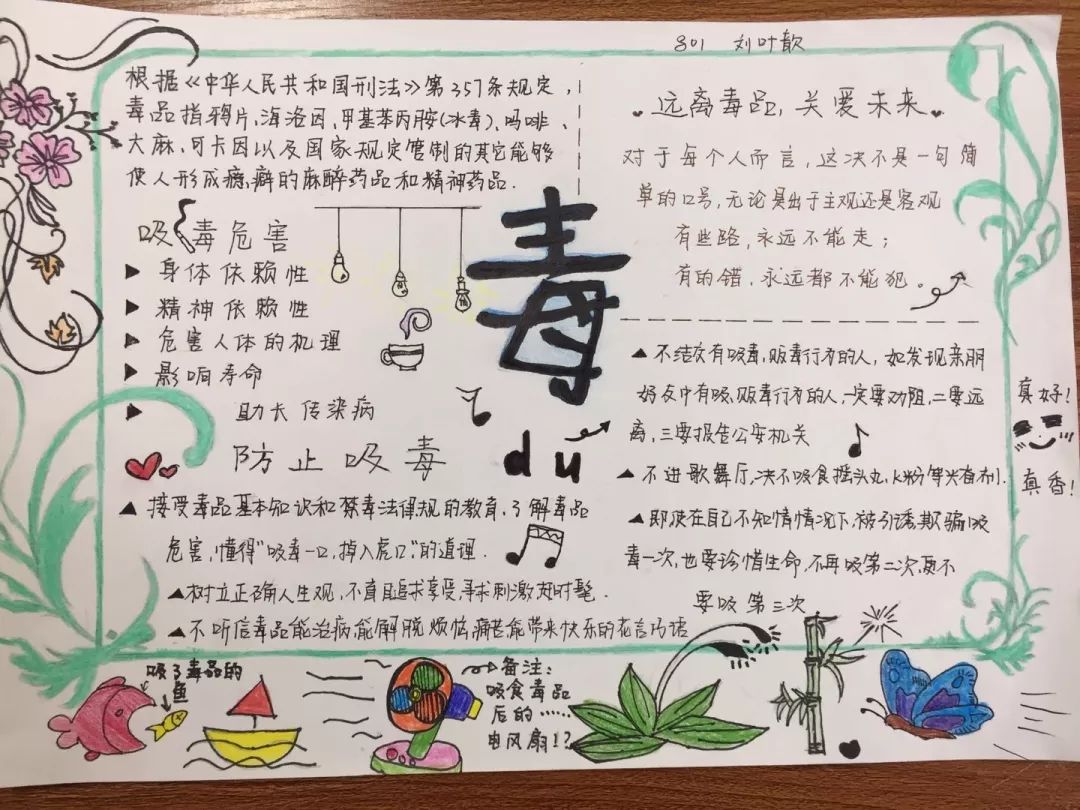 801 刘叶歆
根据《中华人民共和国刑法》第357条规定,
毒品指鸦片、海洛因、甲基苯丙胺(冰毒)、吗啡、
大麻、可卡因以及国家规定管制的其它能够
使人形成瘾癖的麻醉药品和精神药品.
吸毒危害
身体依赖性
精神依赖性
危害人体的机理
影响寿命
助长传染病
防止吸毒
接受毒品基本知识和禁毒法律规的教育,了解毒品
危害,懂得"吸毒一口,掉入虎口"的道理.
树立正确人生观,不盲目追求享受寻求刺激赶时髦.
不听信毒品能治病能解脱烦恼痛苦能带来快乐的花言巧语
毒
du
远离毒品,关爱未来
对于每个人而言,这决不是一句简
单的口号,无论是出于主观还是客观
有些路,永远不能走;
有的错,永远都不能犯。
不结交有吸毒,贩毒行为的人,如发现亲朋
好友中有吸、贩毒行为的人,一定要劝阻,二要远
离,三要报告公安机关
不进歌舞厅,决不吸食摇头丸,K粉等兴奋剂.
即使在自己不知情情况下,被引诱欺骗吸
毒一次,也要珍惜生命,不再吸第二次,更不
要吸第三次
真好!
真香!
吸了毒品的
鱼
备注:
吸食毒品
后的……
电风扇!?